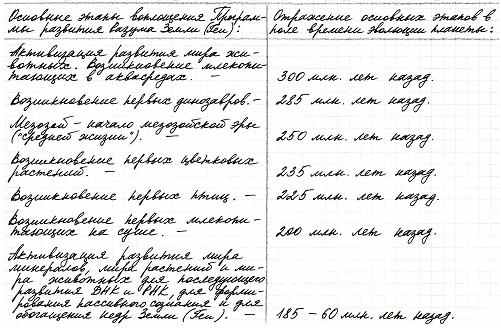 Основные этапы воплощения Програм-
мы развития вакуума Земли (Геи):
Отражение основных этапов в
поле времени эволюции планеты:
Активизация развития мира жи-
вотных. Возникновение млекопи-
тающих в аквасредах. — 300 млн. лет назад.
Возникновение первых динозавров. — 285 млн. лет назад.
Мезозой - начало мезозойской эры
("средней жизни"). — 250 млн. лет назад.
Возникновение первых цветковых
растений. — 235 млн. лет назад.
Возникновение первых птиц. — 225 млн. лет назад.
Возникновение первых млекопи-
тающих на суше. — 200 млн. лет назад.
Активизация развития мира
минералов, мира растений и ми-
ра животных для последующего
развития ДНК и РНК, для форми-
рования пассивного сознания и для
обогащения недр Земли (Геи). — 185 – 60 млн. лет назад.